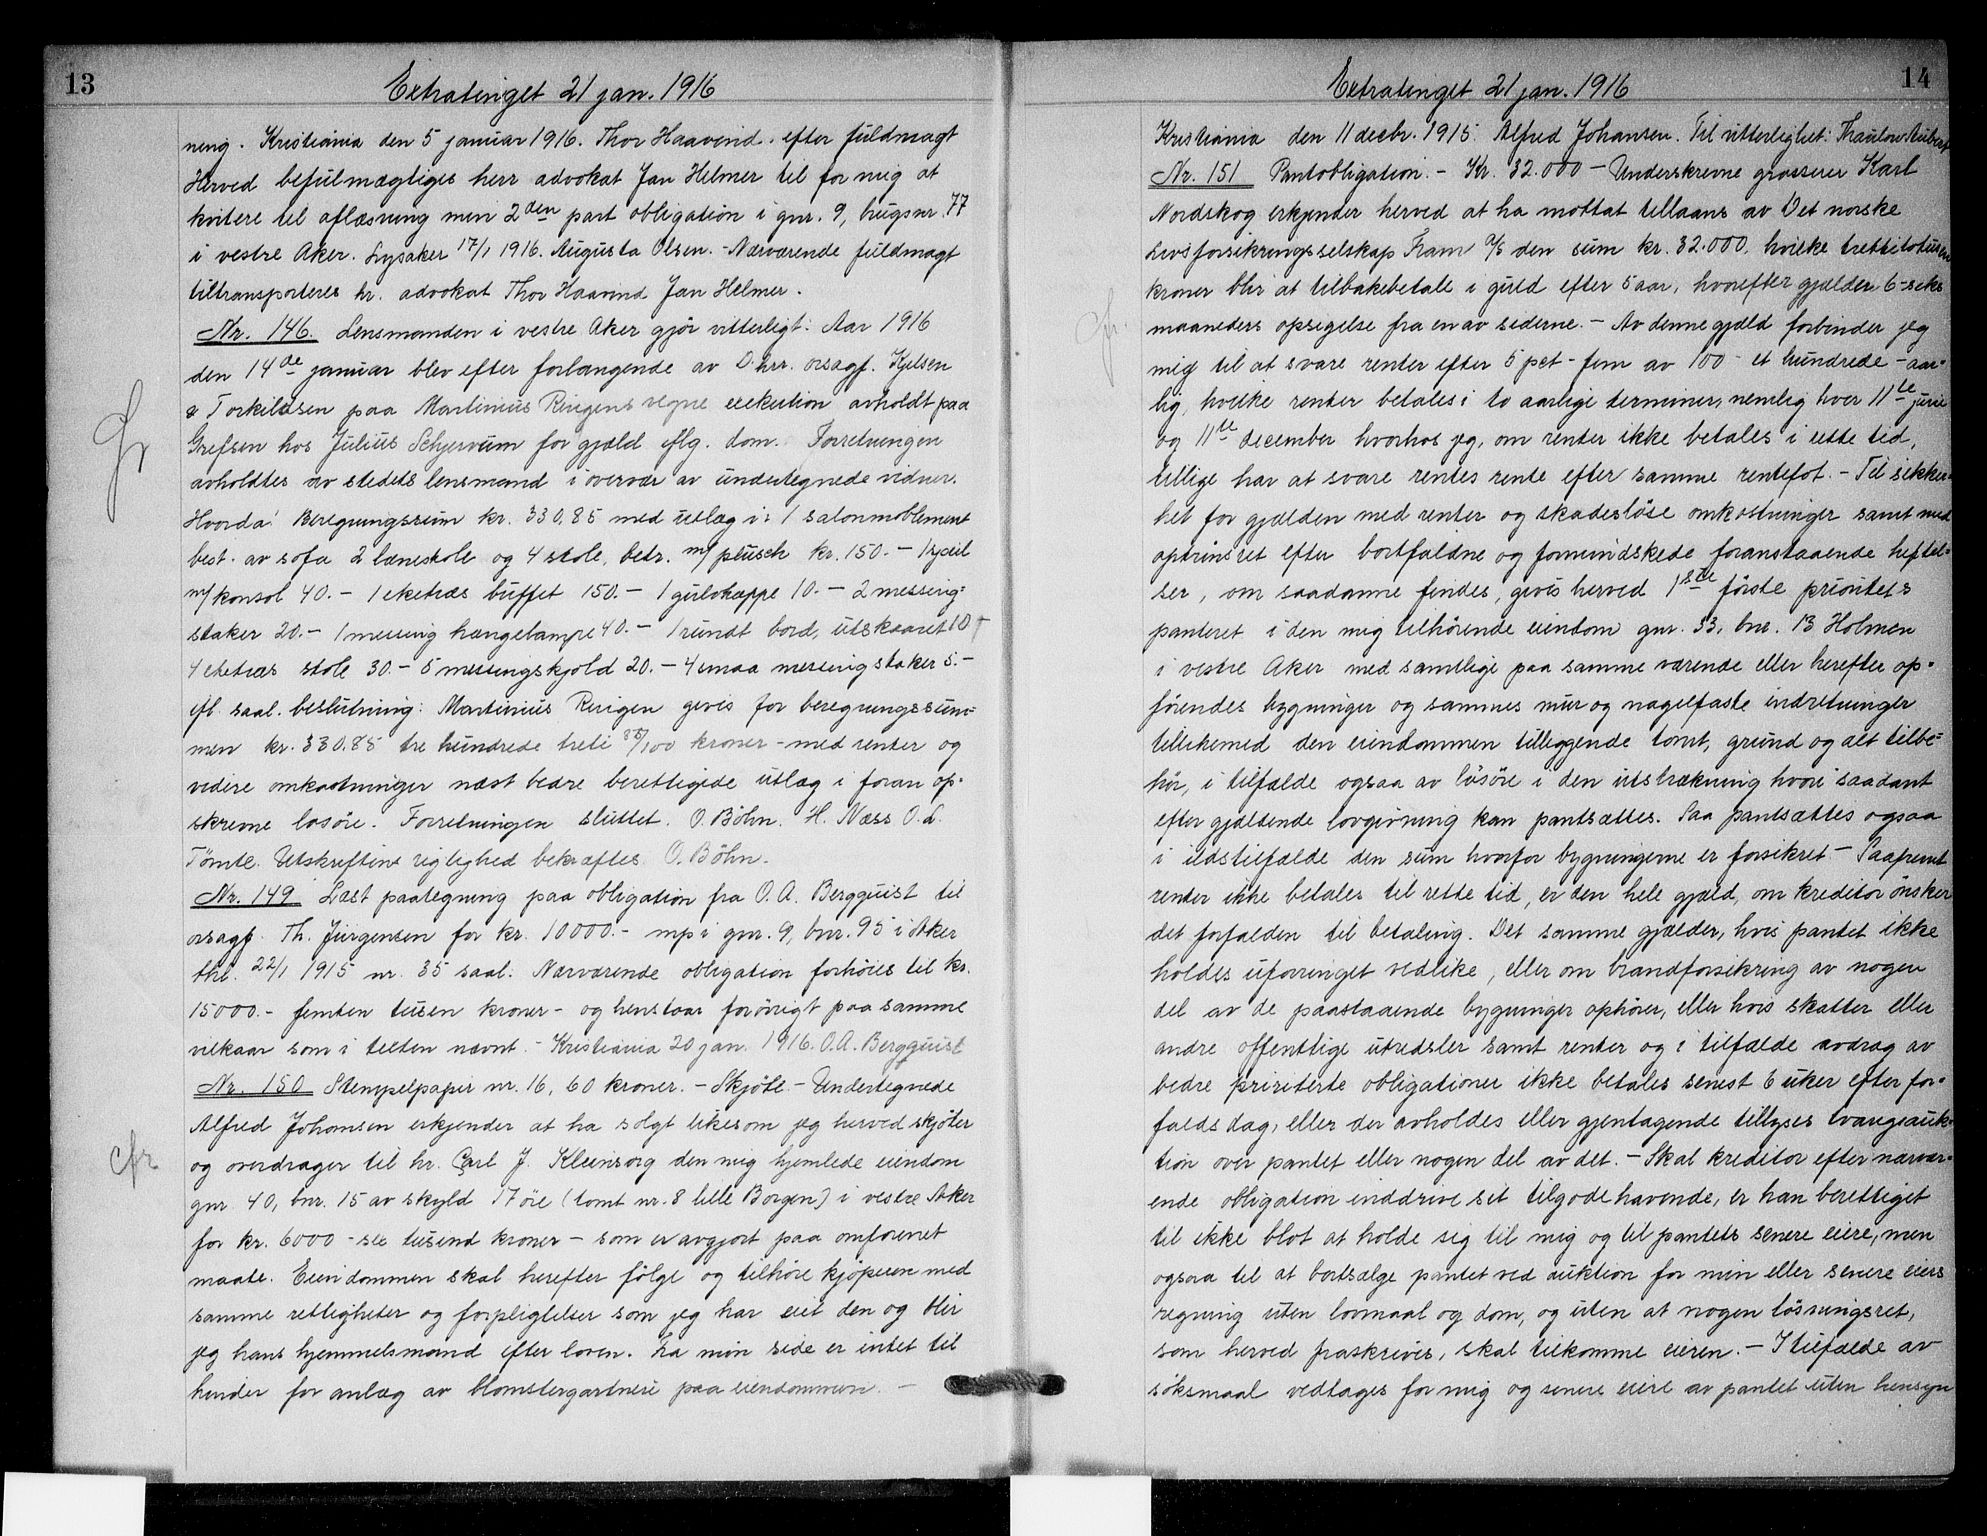 13
Extratinget 21 jan. 1916
ning. Kristiania den 5 januar 1916. Thor Haavind. efter fuldmagt
Herved befulmægtiges herr advokat Jan Helmer til for mig at
kvitere til aflæsning min 2den part obligation i gnr. 9, brugsnr 77
i vestre Aker. Lysaker 17/1 1916. Augusta Olsen. - Nærværende fuldmagt
tiltransporteres hr. advokat Thor Haavind Jan Helmer.
Nr. 146. Lensmanden i vestre Aker gjør vitterligt: Aar 1916
den 14de januar blev efter forlangende av D'hrr. orsagf. Kjelsen
& Torkildsen paa Martinius Ringens vegne exekution avholdt paa
Grefsen hos Julius Schjervum for gjæld iflg. dom. Forretningen
avholdtes av stedets lensmand i overvær av undertegnede vidner.
Hvorda! Beregningssum kr. 330,85 med utlæg i: 1 salonmoblement
best. av sofa 2 lænestole og 4 stole, betr. m/plusch kr. 150.- 1 speil
m/konsol 40.- 1 eketræs buffet 150.- 1 gulvteppe 10.- 2 messing-
staker 20.- 1 messing hængelampe 40.- 1 rundt bord, utskaaret 10.-
4 eketræs stole 30.- 5 messingskjold 20.- 4 smaa messingstaker 5.-
ifl. saal. beslutning: Martinius Ringen gives for beregningssum-
men kr. 330.85 tre hundrede treti 85/100 kroner - med renter og
videre omkostninger næst bedre berettigede utlæg i foran op-
skrevne løsøre. Forretningen sluttet. O. Böhn. H. Næss O. L.
Tömte. Utskriftens rigtighed bekræftes O. Böhn.
Nr. 149 Læst paategning paa obligation fra O. A. Bergquist til
orsagf. Th. Jürgensen for kr. 10000.- mp i gnr. 9, bnr. 95 i Aker
thl. 22/1 1915 nr. 35 saal. Nærværende obligation forhöies til kr.
15000.- femten tusen kroner - og henstaar forövrigt paa samme
vilkaar som i teksten nævnt. - Kristiania 20 jan. 1916. O. A. Bergquist
cfr Nr. 150 Stempelpapir nr. 16, 60 kroner. - Skjöte. - Undertegnede
Alfred Johansen erkjender at ha solgt likesom jeg herved skjöter
og overdrager til hr. Carl J. Kleinsorg den mig hjemlede eiendom
gnr. 40, bnr. 15 av skyld 17 öre (tomt nr. 8 lille Borgen) i vestre Aker
for kr. 6000 - sex tusend kroner - som er avgjort paa omforenet
maate. Eiendommen skal herefter fölge og tilhöre kjöperen med
samme rettigheter og forpligtelser som jeg har eiet den og blir
jeg hans hjemmelsmand efter loven. Fra min side er intet til
hinder for anlæg av blomstergartneri paa eiendommen. -
14
Extratinget 21 jan. 1916
Kristiania den 11 decbr. 1915. Alfred Johansen. Til vitterlighet: Thaulow Aubert
Nr. 151 Pantobligation. - Kr. 32.000 - Underskrevne grosserer Karl
Nordskog erkjender herved at ha mottat tillaans av Det norske
Livsforsikringsselskap Fram A/S den sum kr. 32.000. hvilke trettitotusen
cfr. kroner blir at tilbakebetale i guld efter 5 aar, hvorefter gjælder 6-seks
maaneders opsigelse fra en av siderne. - Av denne gjæld forbinder jeg
mig til at svare renter efter 5 pct - fem av 100 - et hundrede - aar-
lig, hvilke renter betales i to aarlige terminer, nemlig hver 11te juni
og 11te december hvorhos jeg, om renter ikke betales i rette tid,
tillige har at svare rentes rente efter samme rentefot. - Til sikker-
het for gjælden med renter og skadeslöse omkostninger samt med
oprinsret efter bortfaldne og formindskede foranstaaende heftel-
ser, om saadanne findes, gives herved 1ste förste prioritets
panteret i den mig tilhörende eiendom gnr. 33, bnr. 13 Holmen
i vestre Aker med samtlige paa samme værende eller herefter op-
förendes bygninger og sammes mur og nagelfaste indretninger
tillikemed den eiendommen tilliggende tomt, grund og alt tilbe-
hör, i tilfælde ogsaa av lösöre i den utstrækning hvori saadant
efter gjældende lovgivning kan pantsættes. Saa pantsættes ogsaa
i ildstilfælde den sum hvorfor bygningerne er forsikret - Saafremt
renter ikke betales til rette tid, er den hele gjæld, om kreditor önsker
det forfalden til betaling. Det samme gjælder, hvis pantet ikke
holdes uforringet vedlike, eller om brandforsikring av nogen
del av de paastaaende bygninger ophörer, eller hvis skatter eller
andre offentlige utredsler samt renter og i tilfælde avdrag av
bedre prioriterte obligationer ikke betales senest 6 uker efter for-
faldsdag, eller der avholdes eller gjentagende tillyses tvangsauk-
tion over pantet eller nogen del av det. - Skal kreditor efter nærvær-
ende obligation inddrive sit tilgodehavende, er han berettiget
til ikke blot at holde sig til mig og til pantets senere eiere, men
ogsaa til at bortsælge pantet ved auktion for min eller senere eiers
regning uten lovmaal og dom, og uten at nogen lösningsret,
som herved fraskrives, skal tilkomme eieren. - I tilfælde av
söksmaal vedtages for mig og senere eiere av pantet uten hensyn